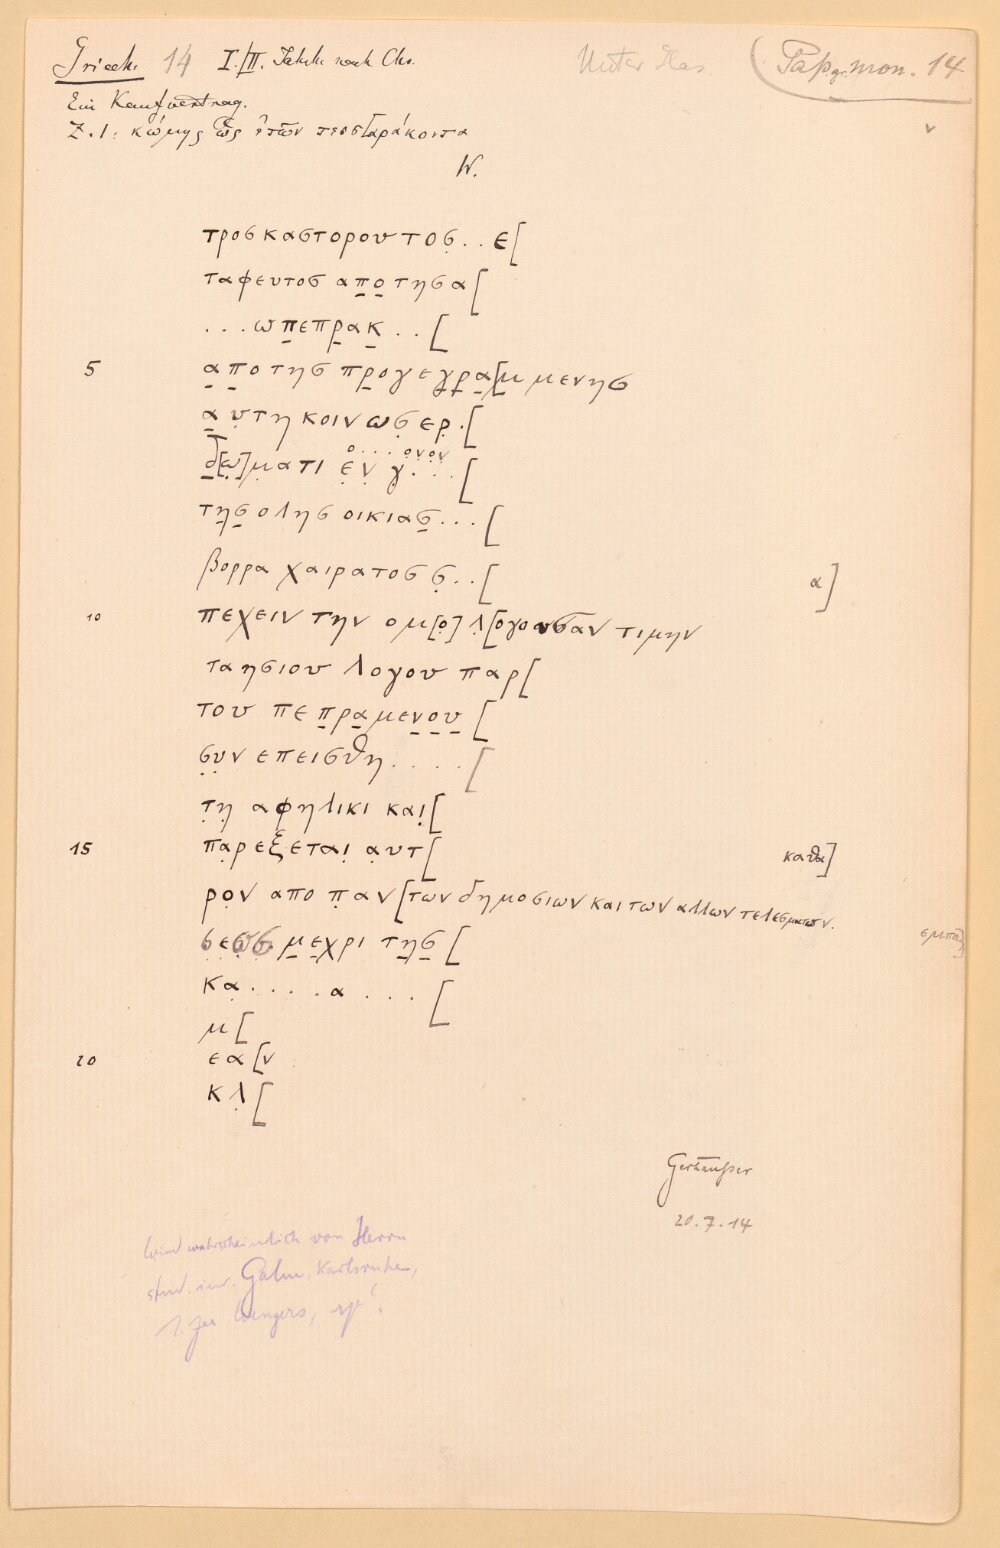 Griech. 14 I./II. Jahrh. nach Chr.
(Pap. gr. mon. 14
Ein Kaufvertrag.
Z.1: κώμης ὡς ἐτῶν τεσσ[αράκοντα
W.
τροσ καστορου τος̣..ε[
ταφευτοσ απ̣ο̣τησα[
...ωπ̣επρ̣ακ̣..[
5 α̣π̣οτησ πρ̣ογεγ̣ρ̣α̣[μ̣μενησ
α̣υτη κοινως̣ερ̣.[
ο...ο̣ν̣ο̣ν̣
δ̣[ω̣]μ̣ατι ε̣ν̣ γ̣...[
τη̣σ̣ ολησ οικιασ̣...[
βορρα χαιρατοσ σ̣..[ α]
10 πεχειν την ομ[ο̣]λ̣[ογουσαν τιμην
ταησιου λογου παρ[
του πεπ̣ρα̣μεν̣ο̣υ̣[
σ̣υ̣ν επεισθη....[
τ̣η̣ αφηλικι και̣[
15 πα̣ρεξεται̣ α̣υτ[ καθα]
ρο̣ν απο π̣αν[των δημοσιων και των αλλων τελεσματων.
σ̣ε̣σ̣σ̣ μ̣ε̣χρι τη̣σ̣[ εμπε]
κα̣....α...[
μ[
20 εα[ν
κλ̣[
Gerhäußer
20.7.14
wird wahrscheinlich von Herrn
stud. iur. Karlsruhe,